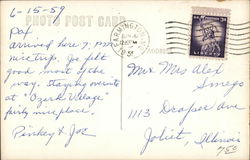 6-15-59
PHOTO POST CARD
Daf.
arrived here 7. P.M.
nice trip. Joe felt
good most of the
way. Staying overnite
at "Ozark Village"
fairly nice place.
Pinkey & Joe
FARMINGTON
JUN
PM
Mr & Mrs Alex
1113 Draper Ave
Joliet, Illinois